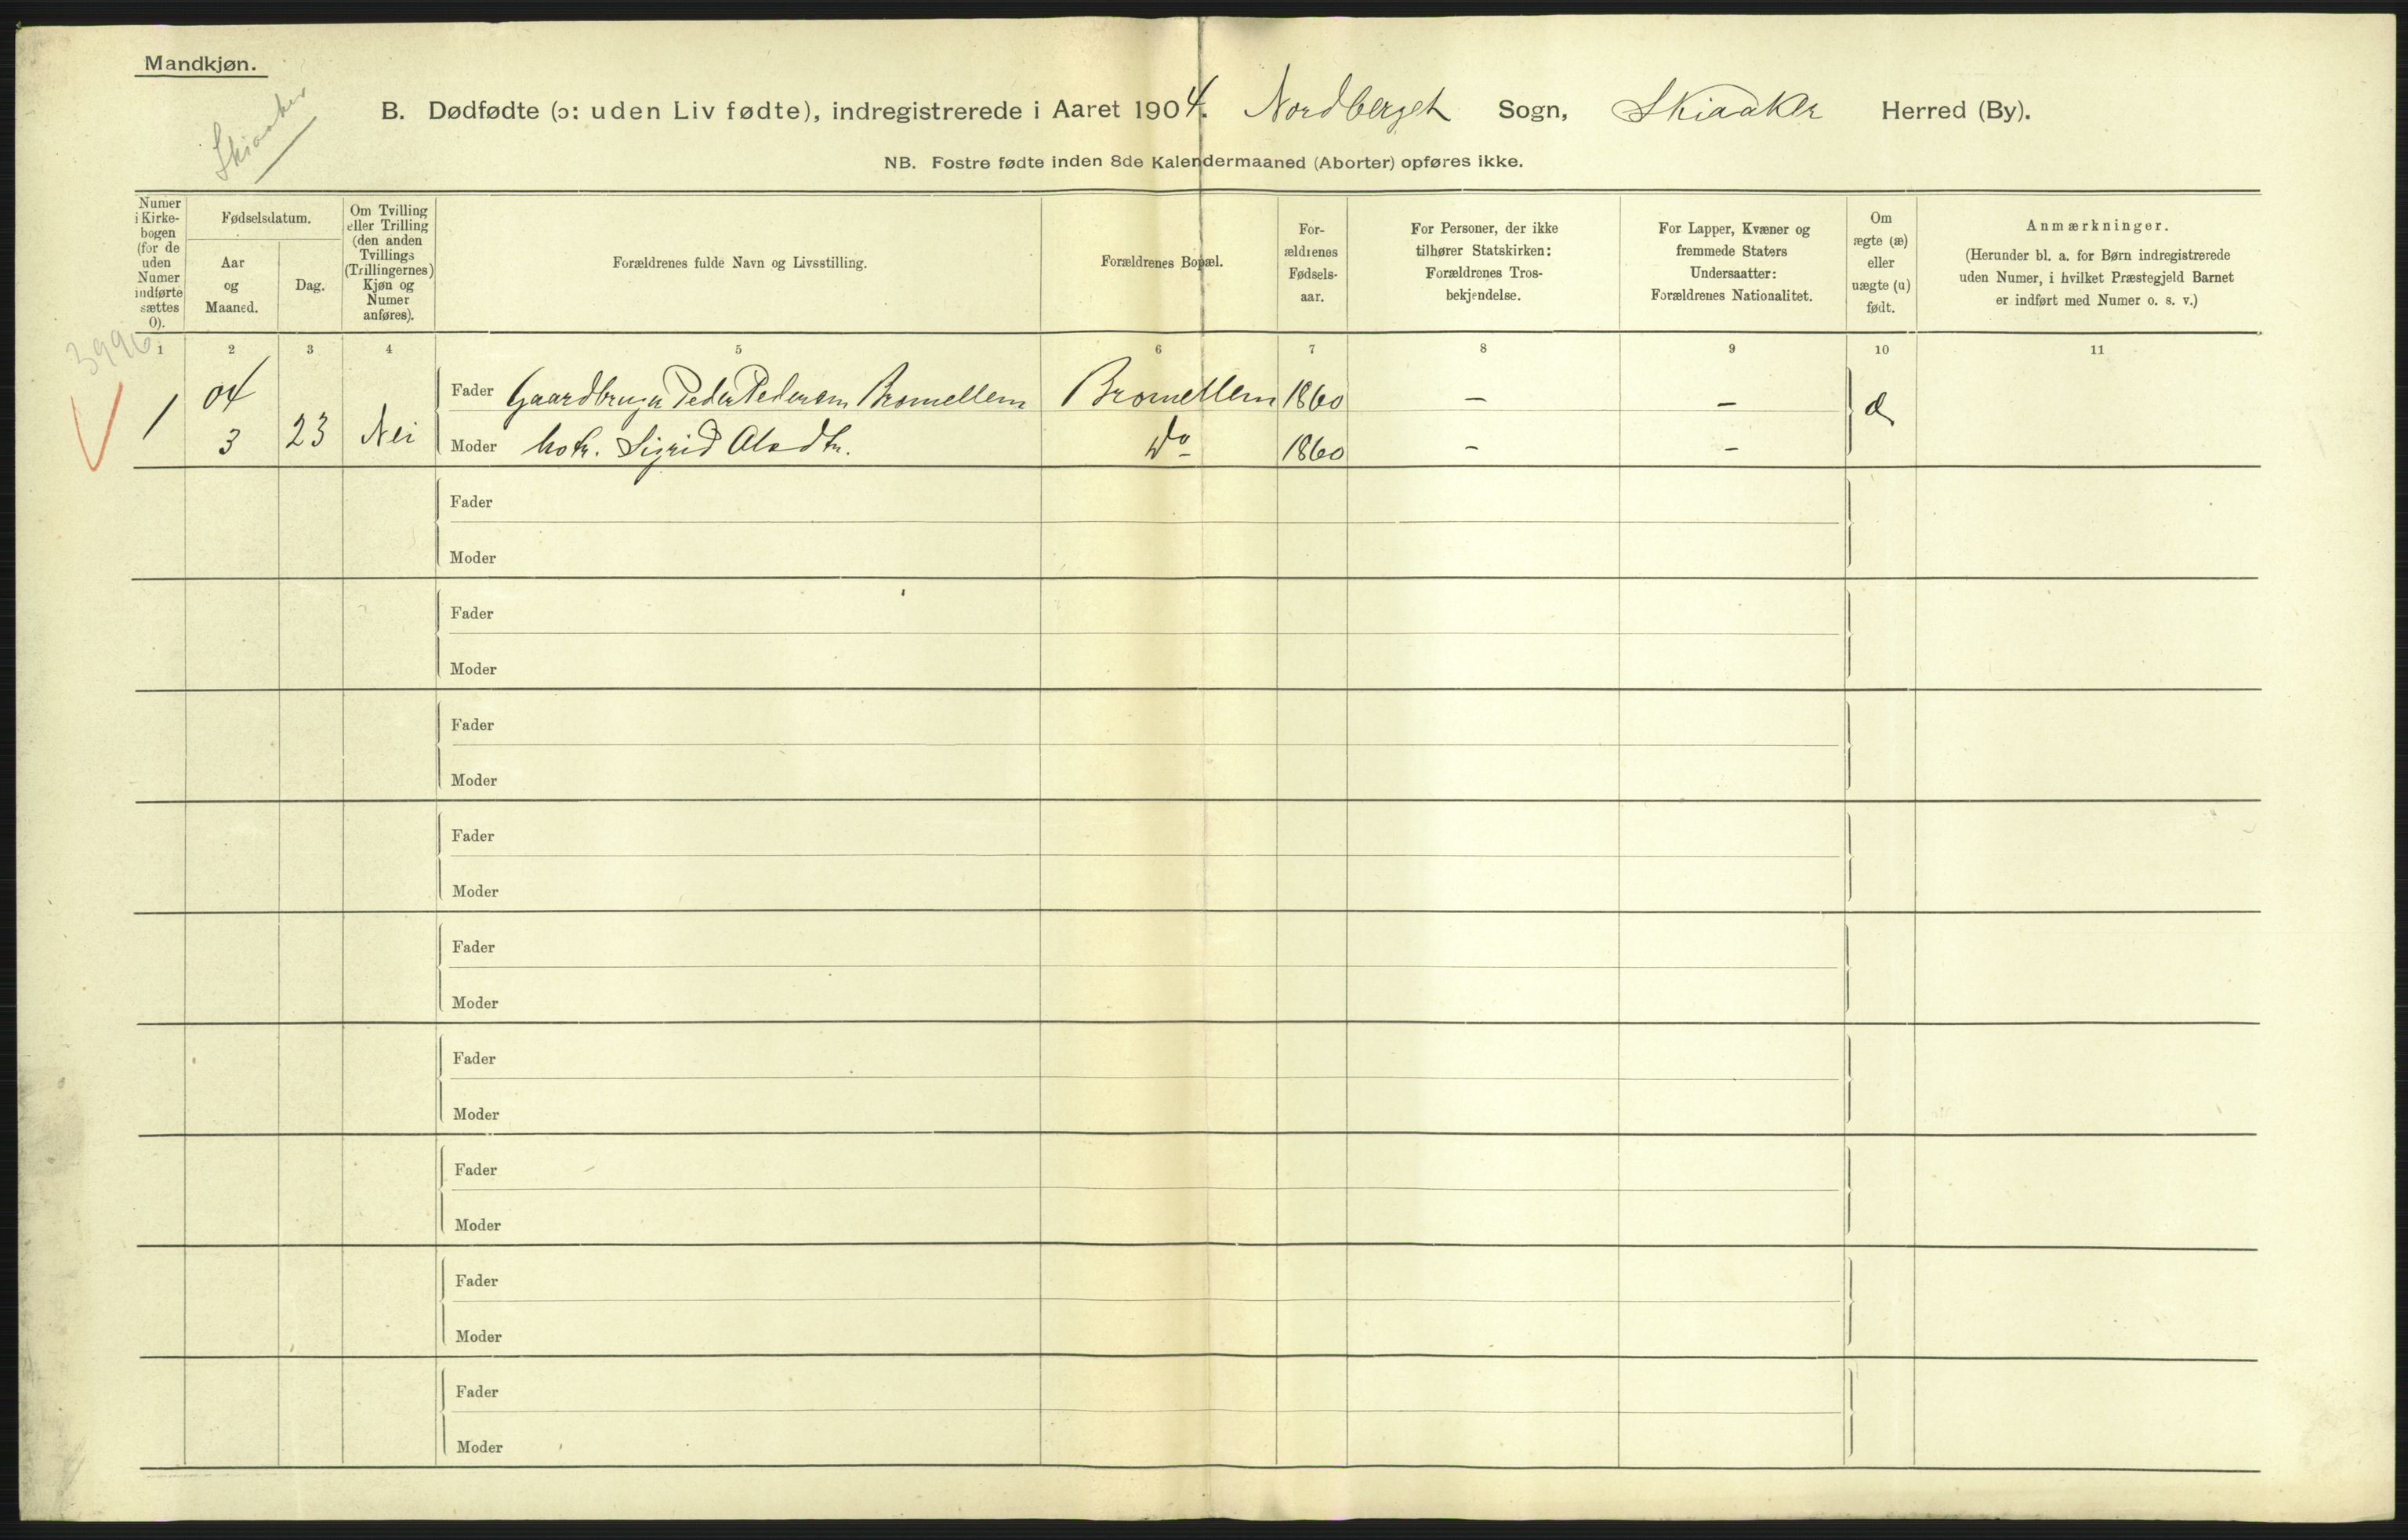 Mandkjøn.
Skiaaker
B. Dødfødte (ɔ: uden Liv fødte), indregistrerede i Aaret 1904. Nordberget Sogn, Skiaaker Herred (By).
NB. Fostre fødte inden 8de Kalendermaaned (Aborter) opføres ikke.
Numer
i Kirke-
bogen
(for de
uden
Numer
indførte
sættes
0).
Fødselsdatum.
Aar
og
Maaned.
Dag.
Om Tvilling
eller Trilling
(den anden
Tvillings
(Trillingernes)
Kjøn og
Numer
anføres).
Forældrenes fulde Navn og Livsstilling.
Forældrenes Bopæl.
For-
ældrenes
Fødsels-
aar.
For Personer, der ikke
tilhører Statskirken:
Forældrenes Tros-
bekjendelse.
For Lapper, Kvæner og
fremmede Staters
Undersaatter:
Forældrenes Nationalitet.
Om
ægte (æ)
eller
uægte (u)
født.
Anmærkninger.
(Herunder bl. a. for Børn indregistrerede
uden Numer, i hvilket Præstegjeld Barnet
er indført med Numer o. s. v.)
3996
1 2 3 4 5 6 7 8 9 10 11
04 Fader Gaardbruger Peder Pedersen Bromellem Bromellem 1860 – – æ
1 3 23 Nei Moder Sigrid do 1860 – –
Fader
Moder
Fader
Moder
Fader
Moder
Fader
Moder
Fader
Moder
Fader
Moder
Fader
Moder
Fader
Moder
Fader
Moder